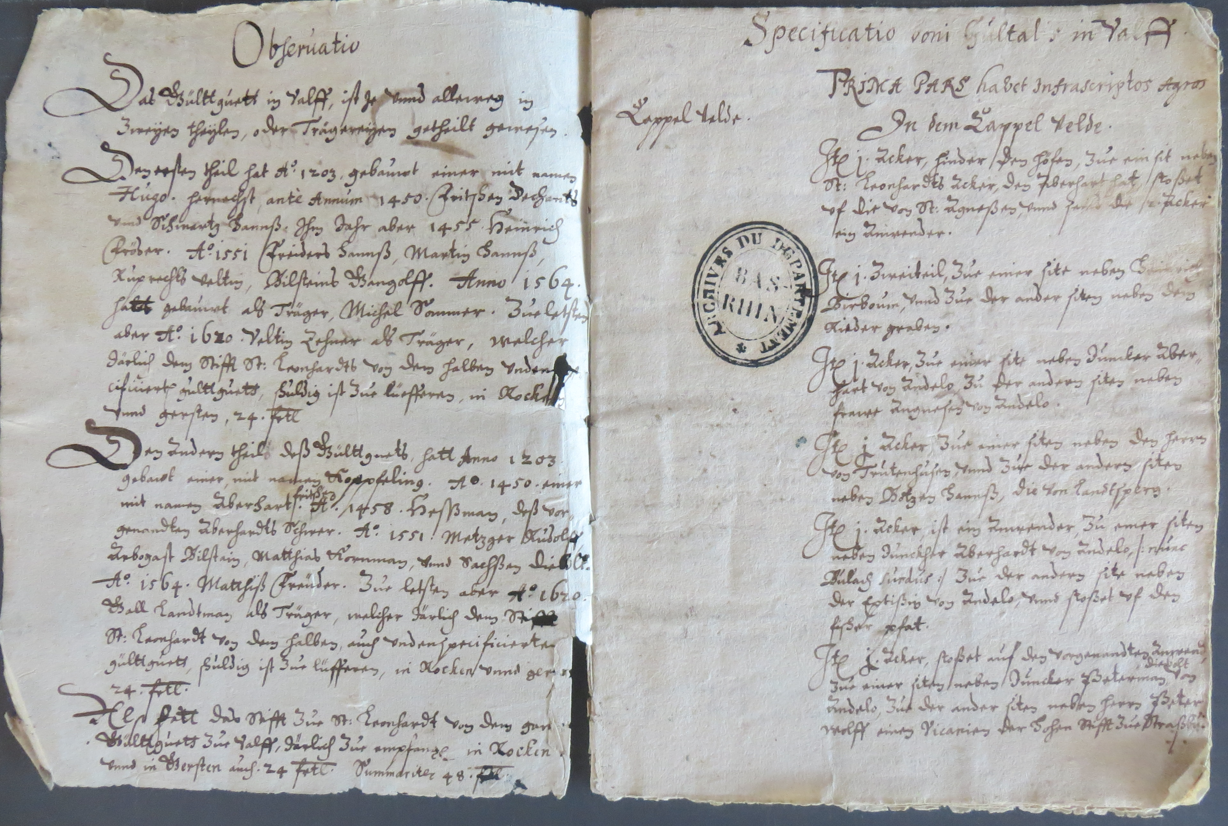 Observatio
Das Gülttguett in Valff, ist Je vnnd alleweg in
Zweyen theylen, oder Trägereyen getheilt gewesen.
Den ersten theil hat Aº. 1203. gebauwt einer mit namen
Hugo. hernachst, ante Annum 1450. Fritschen
vnd Schwertz Hannß: Ihm Jahr aber 1455 Heinrich
Aº. 1551 Hannß, Martin Hannß,
Ruprechts Veltin, Bilsteins Gangolff. Anno 1564.
hatt gebauwt als Träger, Michel Sommer. Zue letsten
aber Aº. 1620. Veltin Lehner als Träger, welcher
Järlich dem Stifft St: Leonhardts von dem halben vnden
gülttguets, schuldig ist zue lüfferen, in Rocken
vnnd gersten, 24. fettl
Den Andern theil deß Gülttguets, hatt Anno 1203
gebawt einer, mit namen Koppfeling. Aº. 1450. einer
mit namen Aberhart. fritsch Aº. 1458. Heßman, deß vor
genandten Aberhardts Schwer. Aº. 1551. Metzger Rudolff
Arbogast Bilstain, Matthias Kornman, vnnd Sachßen Diebolt.
Aº. 1564. Matthiß Zue letsten aber Aº. 1620.
Gall Landtman als Träger, welcher Järlich dem Stifft
St: Leonhardt von dem halben, auch vndenspecificierte
gülttguett, schuldig ist zue lüfferen, in Rocken vnnd gersten
24. fettl.
das Stifft zue St: Leonhardt von dem
Gülttguets zue Valff, Järlich zue empfangen in Rocken
vnnd in Gersten auch. 24 fettl. Summariter 48.
Specificatio boni Gültal: in Valff.
PRIMA PARS habet Infrascriptos Agros
Cappel velde.
In dem Cappel Velde.
Itē j. Acker, hinder den höfen, zue ein sit neben
St: Leonhardts Acker, den Eberhart hat, stoßet
vf die von St: Agneßen vnnd die Acker
ein Anwender.
Itē j. Zweiteil, zue einer site neben
Birboum, vnnd zue der ander siten neben dem
Rieder graben.
Itē j. Acker, zue einer site neben Juncker Aber,
hart von Andelo, zu der andern siten neben
frawe Angnesen von Andelo.
Itē j. Acker, zue einer siten neben den herrn
von Trutenhusen vnnd zue der andern siten
neben Götzen Hannß, die von Landtsperg.
Itē j. Acker, ist ein Anwender, zu einer siten
neben Junckher Aberhardt von Andelo, /: nunc
zue der andern site neben
der Eptißin von Andelo, vnnd stoßet vf den
pfat.
Itē j. Acker, stoßet auf den vorgenandten Anwend,
zue einer siten neben Juncker Peterman von
Andelo, zue der ander siten neben herrn Peter
wolff einen Vicarien der Hohen Stifft zue Straßburg
ARCHIVES DU DEPARTEMENT
BAS
RHIN